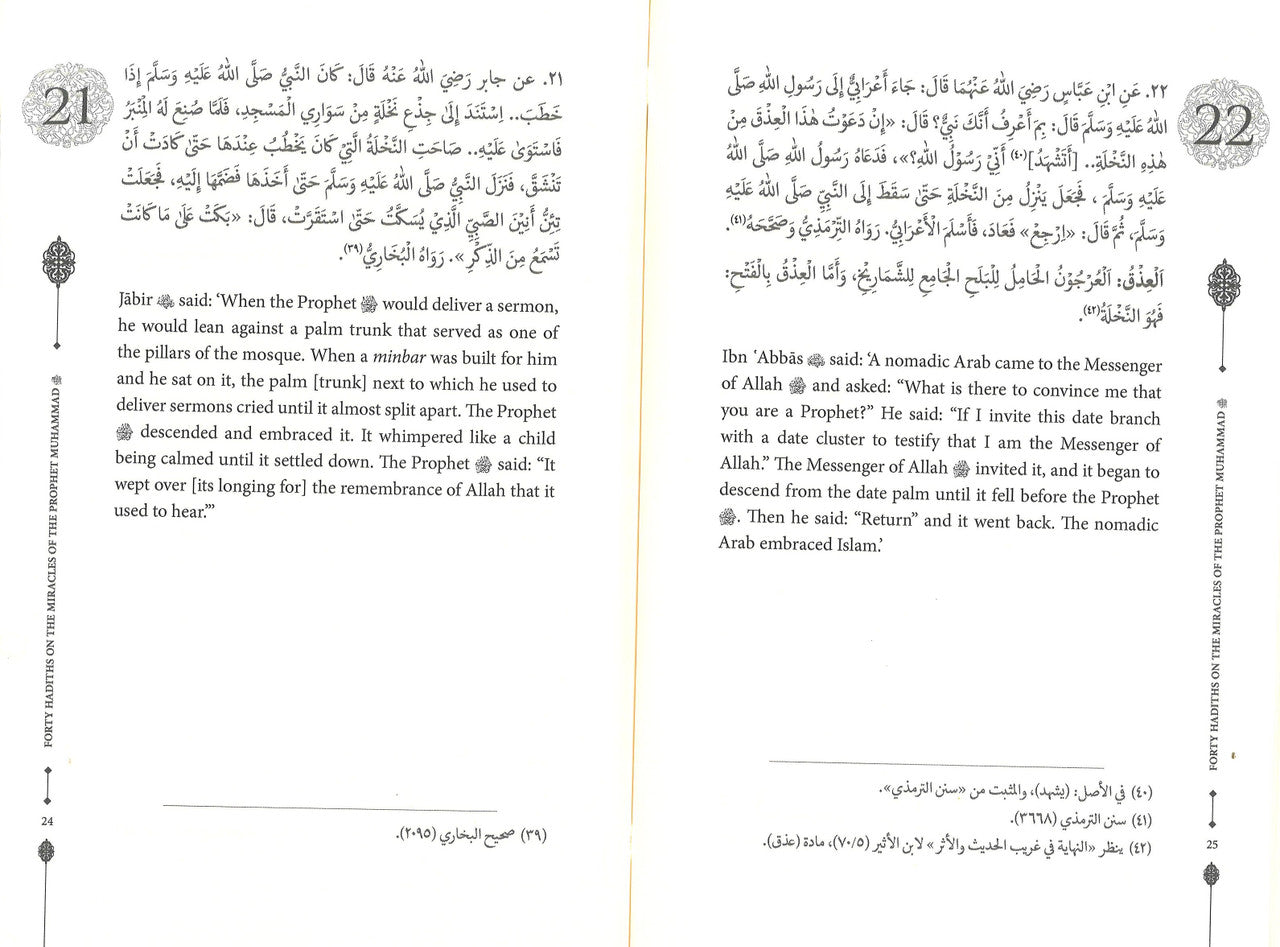 21
٢١. عن جابر رَضِيَ اللهُ عَنْهُ قَالَ: كَانَ النَّبِيُّ صَلَّى اللهُ عَلَيْهِ وَسَلَّمَ إِذَا
خَطَبَ.. اِسْتَنَدَ إِلَىٰ جِذْعِ نَخْلَةٍ مِنْ سَوَارِي الْمَسْجِدِ، فَلَمَّا صُنِعَ لَهُ الْمِنْبَرُ
فَاسْتَوَىٰ عَلَيْهِ.. صَاحَتِ النَّخْلَةُ الَّتِي كَانَ يَخْطُبُ عِنْدَهَا حَتَّىٰ كَادَتْ أَنْ
تَنْشَقَّ، فَنَزَلَ النَّبِيُّ صَلَّى اللهُ عَلَيْهِ وَسَلَّمَ حَتَّىٰ أَخَذَهَا فَضَمَّهَا إِلَيْهِ، فَجَعَلَتْ
تَئِنُّ أَنِينَ الصَّبِيِّ الَّذِي يُسَكَّتُ حَتَّىٰ اسْتَقَرَّتْ، قَالَ: «بَكَتْ عَلَىٰ مَا كَانَتْ
تَسْمَعُ مِنَ الذِّكْرِ». رَوَاهُ الْبُخَارِيُّ(٣٩).
Jābir ﷺ said: ‘When the Prophet ﷺ would deliver a sermon,
he would lean against a palm trunk that served as one of
the pillars of the mosque. When a minbar was built for him
and he sat on it, the palm [trunk] next to which he used to
deliver sermons cried until it almost split apart. The Prophet
ﷺ descended and embraced it. It whimpered like a child
being calmed until it settled down. The Prophet ﷺ said: “It
wept over [its longing for] the remembrance of Allah that it
used to hear.”’
(٣٩) صحيح البخاري (٢٠٩٥).
FORTY HADITHS ON THE MIRACLES OF THE PROPHET MUHAMMAD ﷺ
24
22
٢٢. عَنِ ابْنِ عَبَّاسٍ رَضِيَ اللهُ عَنْهُمَا قَالَ: جَاءَ أَعْرَابِيٌّ إِلَى رَسُولِ اللهِ صَلَّى
اللهُ عَلَيْهِ وَسَلَّمَ قَالَ: بِمَ أَعْرِفُ أَنَّكَ نَبِيٌّ؟ قَالَ: «إِنْ دَعَوْتُ هٰذَا الْعِذْقَ مِنْ
هٰذِهِ النَّخْلَةِ.. [أَتَشْهَدُ](٤٠) أَنِّي رَسُوْلُ اللهِ؟»، فَدَعَاهُ رَسُولُ اللهِ صَلَّى اللهُ
عَلَيْهِ وَسَلَّمَ ، فَجَعَلَ يَنْزِلُ مِنَ النَّخْلَةِ حَتَّىٰ سَقَطَ إِلَى النَّبِيِّ صَلَّى اللهُ عَلَيْهِ
وَسَلَّمَ، ثُمَّ قَالَ: «اِرْجِعْ» فَعَادَ، فَأَسْلَمَ الْأَعْرَابِيُّ. رَوَاهُ التِّرْمِذِيُّ وَصَحَّحَهُ(٤١).
اَلْعِذْقُ: اَلْعُرْجُوْنُ الْحَامِلُ لِلْبَلَحِ الْجَامِعِ لِلشَّمَارِيْخِ، وَأَمَّا الْعِذْقُ بِالْفَتْحِ:
فَهُوَ النَّخْلَةُ(٤٢).
Ibn ʿAbbās said: ‘A nomadic Arab came to the Messenger
of Allah ﷺ and asked: “What is there to convince me that
you are a Prophet?” He said: “If I invite this date branch
with a date cluster to testify that I am the Messenger of
Allah.” The Messenger of Allah ﷺ invited it, and it began to
descend from the date palm until it fell before the Prophet
ﷺ. Then he said: “Return” and it went back. The nomadic
Arab embraced Islam.’
(٤٠) في الأصل: (يشهد)، والمثبت من «سنن الترمذي».
(٤١) سنن الترمذي (٣٦٦٨).
(٤٢) ينظر «النهاية في غريب الحديث والأثر» لابن الأثير (٧٠/٥)، مادة (عذق).
FORTY HADITHS ON THE MIRACLES OF THE PROPHET MUHAMMAD ﷺ
25